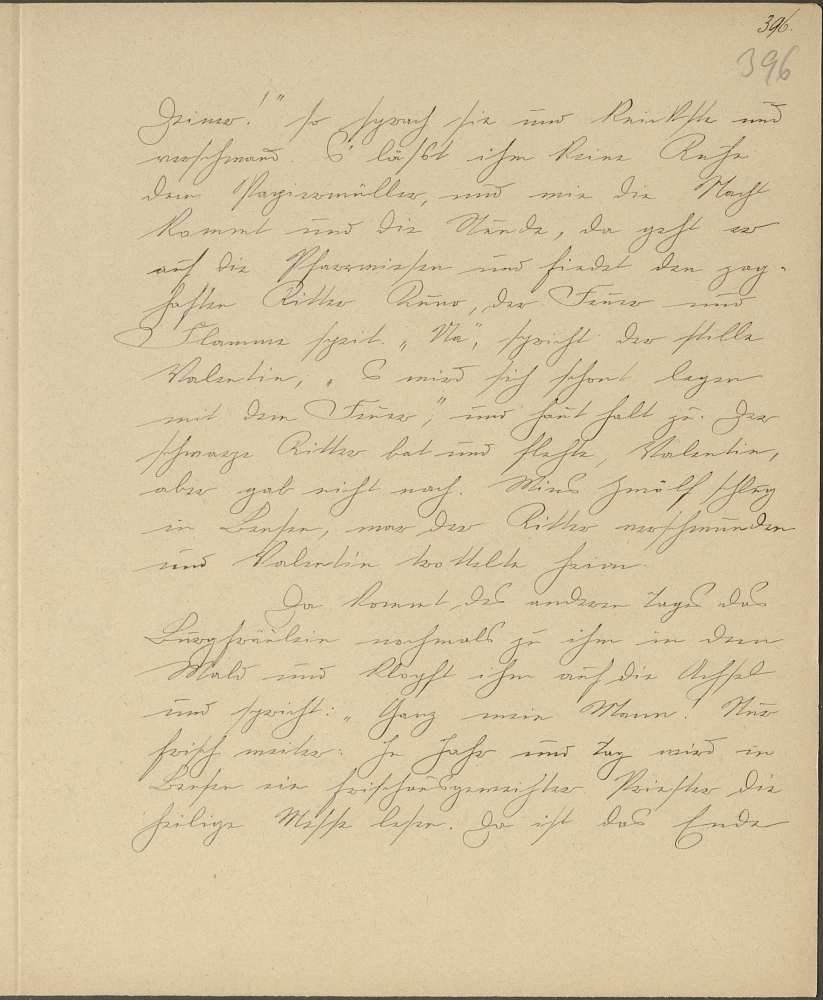 396.
396
Deiner!" so sprach sie und knickste und
verschwand. S' läßt ihm keine Ruhe
dem Papiermüller, und wie die Nacht
kommt und die Stunde, da geht er
auf die Pfarrwiesen und findet den zag-
haften Ritter Kuno, der Feuer und
Flamme speit. „Na", spricht der stille
Valentin, „S wird sich schont legen
mit dem Feuer", und haut halt zu. Der
schwarze Ritter bat und flehte, Valentin,
aber gab nicht nach. Wies zwölf schlug
in Bensen, war der Ritter verschwunden
und Valentin trottelte heim.
Da kommt des anderen Tages das
Burgfräulein nochmals zu ihm in den
Wald und klopft ihm auf die Achsel
und spricht: „Ganz mein Mann! Nur
frisch weiter: In Jahr und Tag wird in
Bensen ein frischausgeweihter Priester die
heilige Messe lesen. Da ist das Ende